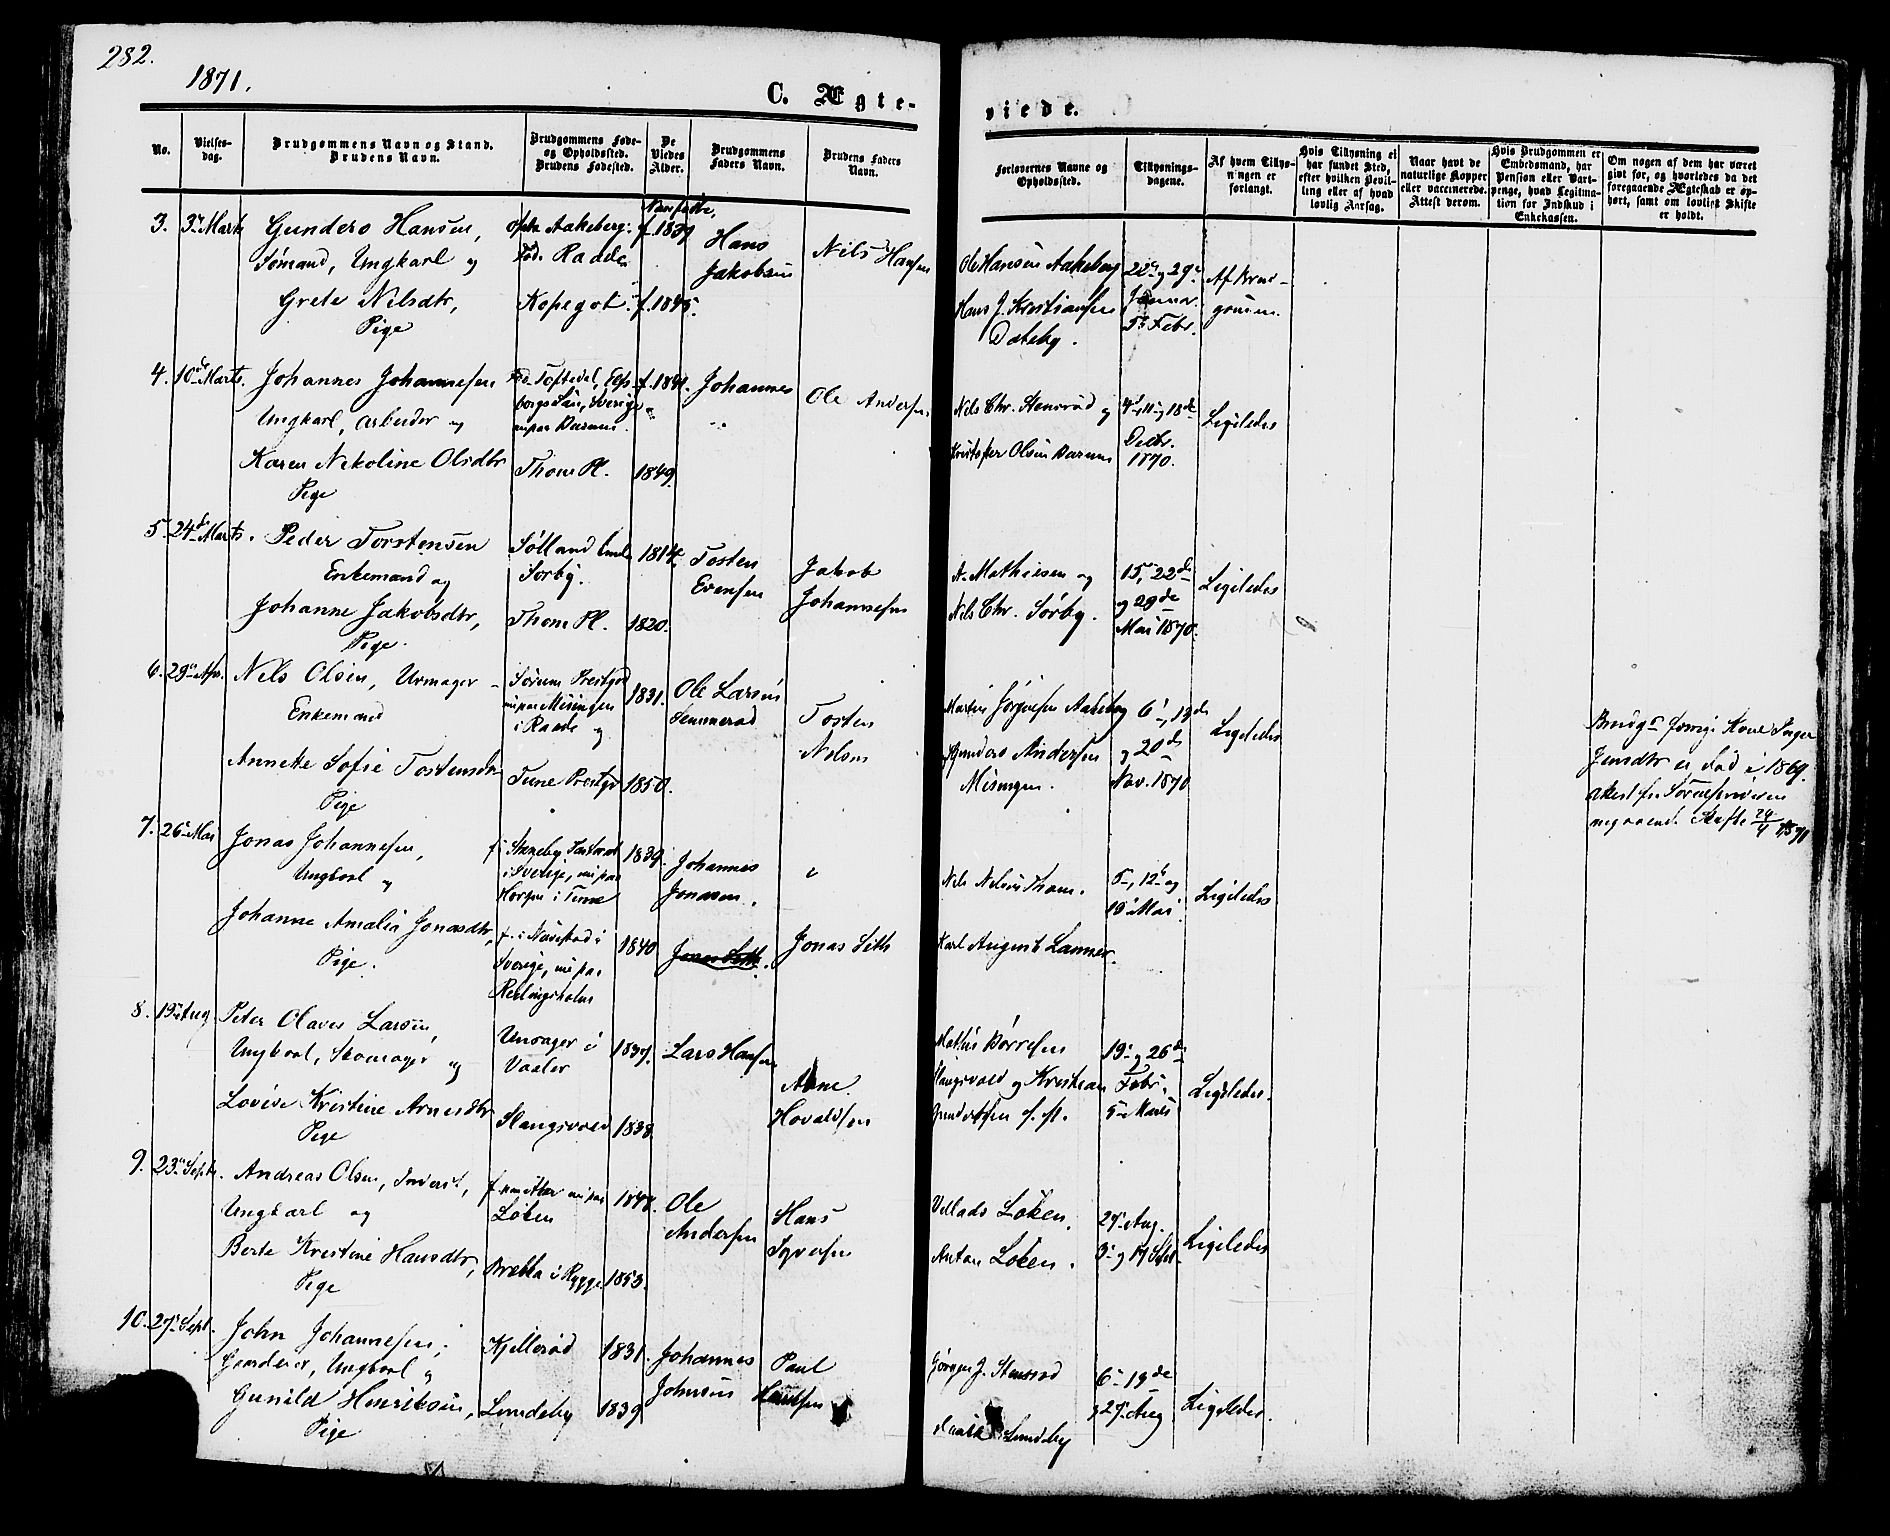 282.
1871.
C. Ægte-
viede.
No.
Vielses-
dag.
Brudgommens Navn og Stand.
Brudens Navn.
Brudgommens Føde-
og Opholdssted.
Brudens Fødested.
De
Viedes
Alder.
Brudgommens
Faders Navn.
Brudens Faders
Navn.
Forlovernes Navne og
Opholdssted.
Tillysnings-
dagene.
Af hvem Tillys-
ningen er
forlangt.
Hvis Tillysning ei
har fundet Sted,
efter hvilken Bevil-
ling eller af hvad
lovlig Aarsag.
Naar havt de
naturlige Kopper
eller vaccinerede.
Attest derom.
Hvis Brudgommen er
Embedsmand, har
Pension eller Vart-
penge, hvad Legitima-
tion for Indskud i
Enkekassen.
Om nogen af dem har været
gift før, og hvorledes da det
foregaaende Ægteskab er op-
hørt, samt om lovligt Skifte
er holdt.
3. 3 Marts
Gunders Hansen,
Sømand, Ungkarl og
Grete Nilsdtr,
Pige
Aakeberg
Fød. Raade
Kopegot
f. 1839
f. 1845.
Hans
Jakobsen
Nils Hansen
Ole Hansen Aakeberg
Hans J. Kristiansen
22 og 29
Januar
5 Febr.
Af Brud-
gommen
4. 10de Marts.
Johannes Johannesen
Ungkarl, Arbeider og
Karen Nikoline Olsdtr
Pige
Toftedal
Sverige
Thom Pl.
f. 1841.
1849.
Johannes
Ole Andersen
Nils Chr. Stensrød og
Kristoffer Olsen
4, 11 og 18de
Decbr.
1870.
Ligeledes
5. 24de Marts.
Peder Torstensen
Enkemand og
Johanne Jakobsdtr,
Pige.
Sølland
Sørby.
Thom Pl.
1814.
1820.
Tosten
Evensen
Jakob
Johannesen
A. Mathiesen og
Nils Chr. Sørby.
15, 22de
og 29de
Mai 1870.
Ligeledes
6. 29 Apr.
Nils Olsen, Urmager
Enkemand
Annette Sofie Tostensdtr
Pige
Sørum Prestgjd
Misingen
i Raade og
Tune Prestgjd
1831.
1850.
Ole Larsen
Tosten
Nilsen
Martin Jørgensen Aakeberg
Gunders Andersen
Misingen.
6, 13de
og 20de
Nov. 1870
Ligeledes
Brudg forrige Kone Inger
Jensdtr er død i 1869.
1871
7. 26 Mai
Jonas Johannesen,
Ungkarl og
Johanne Amalia Jonasdtr,
Pige.
i Sverige,
i Tune
f. i Navestad i
Sverige,
1839.
1840
Johannes
Jonasen.
Jonas Seth.
Jonas Seth
Nils Nilsen Thom.
Karl August Lanner.
5, 12 og
19 Mai
Ligeledes
8. 19 Aug.
Peter Olaves Larsen,
Ungkarl, Skomager og
Lovise Kristine Arnesdtr
Pige
Unsager i
Vaaler
Slangsvold
1837.
1838.
Lars Hansen
Arne
Hovaldsen
Mathis Børresen
Slangsvold og Kristian
19 og 26de
Febr.
5 Marts
Ligeledes.
9. 23 Septr.
Andreas Olsen, Inderst,
Ungkarl og
Berte Kristine Hansdtr,
Pige
Løken
Brekka i Rygge
1848.
1853.
Ole
Andersen
Hans
Syversen
Vellads Løken.
Anton Løken.
27 Aug.
3 og 17 Sept.
Ligeledes
10. 27 Sept.
John Johannesen,
Gaardeier, Ungkarl og
Gunild Henriksen,
Pige
Kjellerød
Lundeby
1831.
1839
Johannes
Johnsen
Paul
Jørgen J. Stensrød
Lundeby
6 19de
27 Aug
Ligeledes.